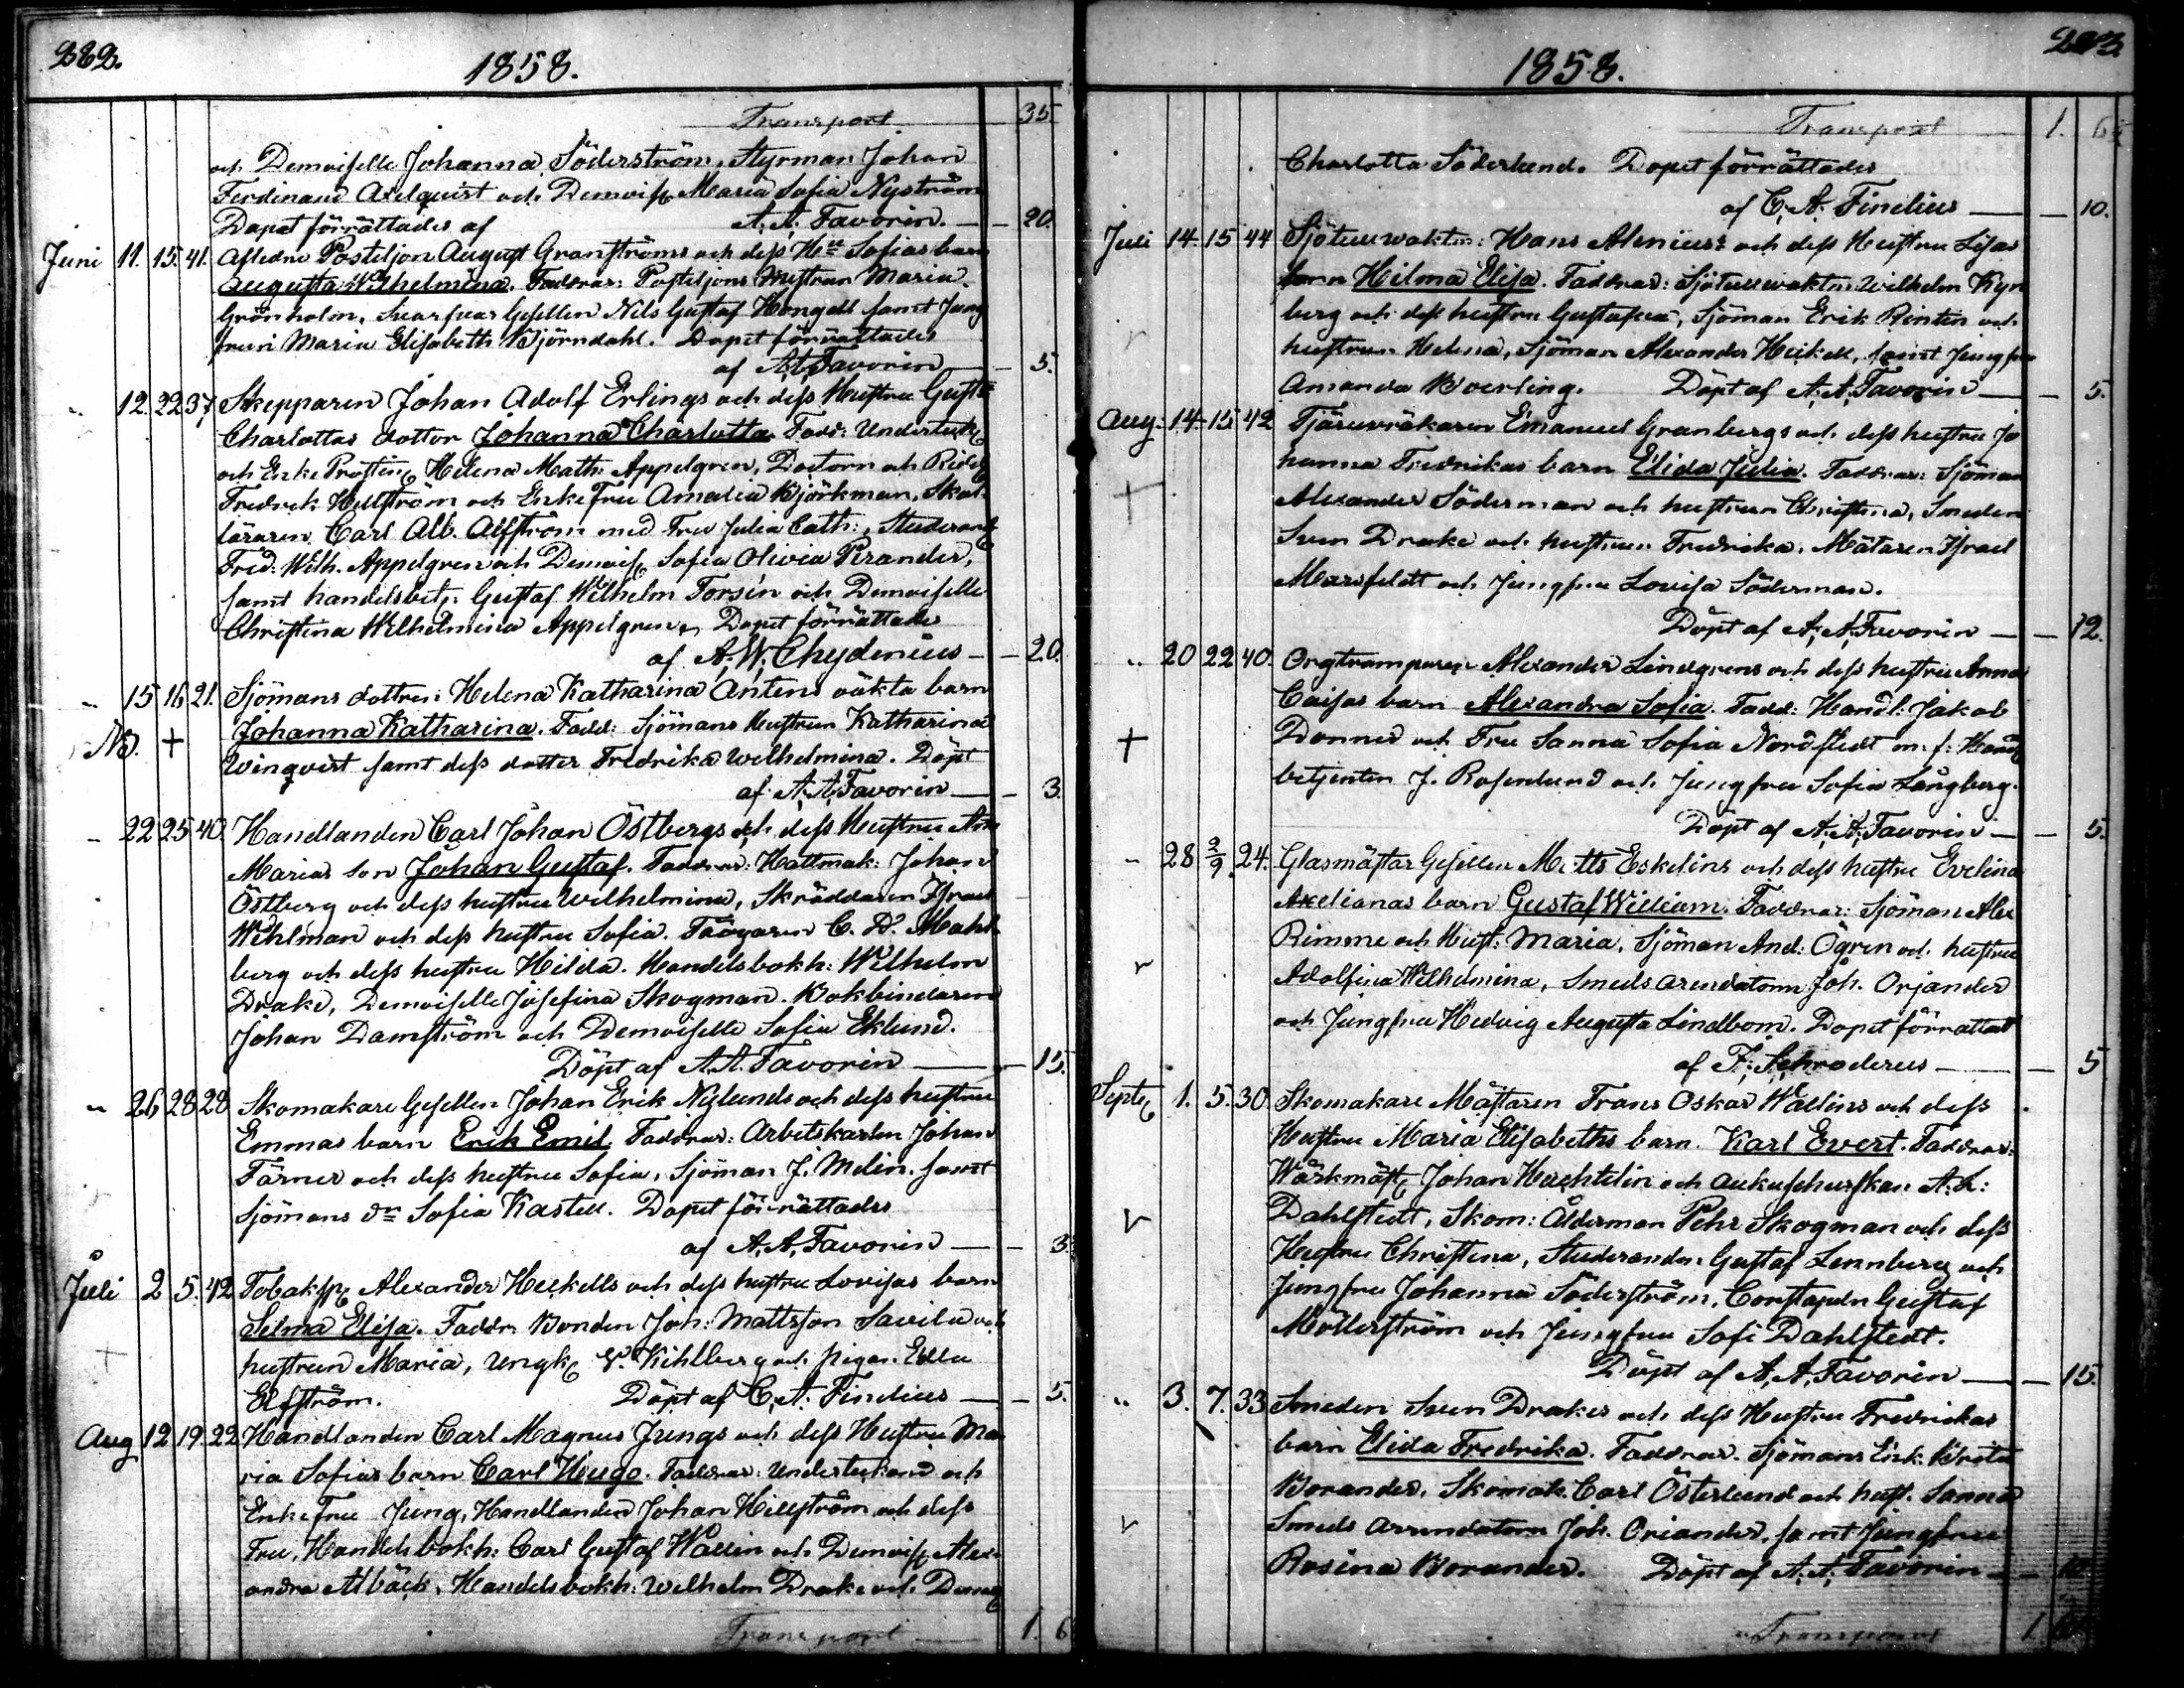 282.
1858.
Transport 35.
och Demoiselle Johanna Söderström, Styrman Johan
Ferdinand Axelquist och Demois. Maria Sofia Nyström
Dopet förrättades af A. A. Favorin. — 20.
Juni 11. 15. 41. Aflidne Postiljon August Granströms och dess Hu Sofias barn
Augusta Wilhelmina. Faddrar: Postiljons Hustrun Maria
Grönholm, Svarfvar Gesellen Nils Gustaf Hongell samt Jung
frun Maria Elisabeth Björndahl. Dopet förrättades
af A. A. Favorin — 5.
" 12. 22 37 Skepparen Johan Adolf Erlings och dess Hustru Gust:
Charlottas dotter Johanna Charlotta. Fadd: Underteck.
och Enke Prostin. Helena Math: Appelgren, Doctorn och Ridd.
Fredrik Hellström och Enke Fru Amalia Björkman, Skol-
läraren Carl Alb. Alfström med Fru Julia Cath:, Studerand.
Fred: Wilh. Appelgren och Demois. Sofia Olivia Pirander,
samt handelsbetj: Gustaf Wilhelm Forsén och Demoiselle
Christina Wilhelmina Appelgren, Dopet förrättades
af A. W. Chydenius — 20.
" 15 16 21. Sjömans dottren Helena Katharina Anténs oäkta barn
NB. + Johanna Katharina. Fadd: Sjömans Hustrun Katharina
Winqvist samt dess dotter Fredrika Wilhelmina. Döpt
af A. A. Favorin — 3.
" 22 25 40. Handlanden Carl Johan Östbergs och dess Hustru Ann
Marias son Johan Gustaf. Faddrar: Hattmak: Johan
Östberg och dess hustru Wilhelmina, Skräddaren Israel
Wihlman och dess hustru Sofia. Färgaren C. D. Mahl-
berg och dess hustru Hilda. Handelsbokh: Wilhelm
Drake, Demoiselle Josefina Skogman. Bokbindaren
Johan Damström och Demoiselle Sofia Eklund.
Döpt af A. A. Favorin — 15.
" 26 28 28 Skomakare Gesellen Johan Erik Nylunds och dess hustru
Emmas barn Erik Emil. Faddrar: Arbetskarlen Johan
Färner och dess hustru Sofia, Sjöman J. Melin samt
Sjömans dr Sofia Kastell. Dopet förrättades
af A. A. Favorin — 3.
Juli 2 5. 42 Tobaksp. Alexander Heikells och dess hustru Lovisas barn
Selma Elisa. Faddr. Bonden Joh: Mattsson Savila och
hustrun Maria, Ungk. Kihlberg och pigan Edla
Elfström. Döpt af C. A. Finelius — 5.
Aug 12 19. 22 Handlanden Carl Magnus Jungs och dess Hustru Ma
ria Sofias barn Carl Hugo. Faddrar: Undertecknad och
Enke Fru Jung, Handlanden Johan Hillström och dess
Fru, Handelsbokh: Carl Gustaf Wallin och Demois. Alex-
andra Albäck, Handelsbokh: Wilhelm Drake och Demois
Transport 1. 6
1858.
Transport 1. 6
Charlotta Söderlund. Dopet förrättades
af C. A. Finelius — 10.
Juli 14. 15 44 Sjötullvaktm: Hans Alenius: och dess Hustru Lisas
barn Hilma Elisa. Faddrar: Sjötullvaktm: Wilhelm Kyn
berg och dess hustru Gustafva, Sjöman Erik Rintin och
hustrun Helena, Sjöman Alexander Heikell, samt Jungfru
Amanda Boerling. Döpt af A. A. Favorin — 5.
Aug: 14 15 42 Tjäruvräkaren Emanuel Granbergs och dess hustru Jo
hanna Fredrikas barn Elida Julia. Faddrar: Sjöman
+ Alexander Söderman och hustrun Christina, Smeden
Sven Drake och hustrun Fredrika, Mätaren Israel
Marsfeldt och Jungfru Lovisa Söderman.
Döpt af A. A. Favorin — 12.
" 20 22 40. Orgtramparen Alexander Lindgrens och dess hustru Anna
Caisas barn Alexandra Sofia. Fadd: Handl: Jakob
+ Donner och Fru Sanna Sofia Nordstedt m. f: Hand.
betjenten J. Rosenlund och Jungfru Sofia Långberg.
Döpt af A. A. Favorin — 5.
" 28 2/9 24. Glasmästar Gesellen Matts Eskelins och dess hustru Evelina
Axelianas barn Gustaf William. Faddrar: Sjöman Alex
Rimme och Hust: Maria, Sjöman And: Ögren och hustru
Adolfina Wilhelmina, Smeds arendatorn Joh. Orjander
och Jungfru Hedvig Augusta Lindbom. Dopet förrättat
af F. Schroderus — 5
Septe. 1. 5. 30 Skomakare Mästaren Frans Oskar Wallins och dess
Hustru Maria Elisabeths barn Karl Evert. Faddrar:
Wärkmäst. Johan Hachtelin och ackuschurskan A. L:
Dahlstedt, Skom: Ålderman Pehr Skogman och dess
Hustru Christina, Studeranden Gustaf Lennberg och
Jungfru Johanna Söderström, Corstapeln Gustaf
Möllerström och Jungfru Sofi Dahlstedt.
Döpt af A. A. Favorin — 15.
" 3. 7. 33 Smeden Sven Drakes och dess Hustru Fredrikas
barn Elida Fredrika. Faddrar. Sjömans Enk. Brita
Borander, Skomak. Carl Österlund och hust. Sanna
Smeds arrendatorn Joh. Oriander, samt Jungfrun
Rosina Borander. Döpt af A. A. Favorin — 10
Transport 1